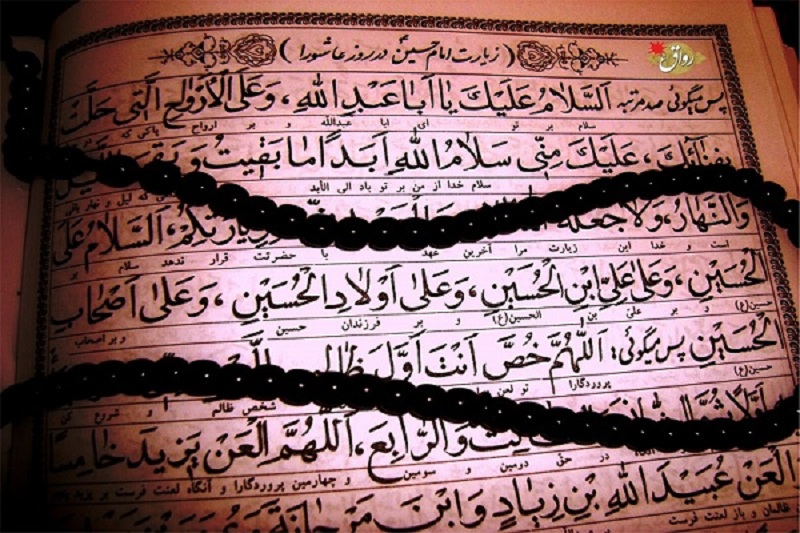 زیارت امام حسین ع در روز عاشورا
رواق
پس میگوئی صد مرتبه اَلسَّلامُ عَلَیْكَ یا اَباعَبْدِ اللهِ، وَعَلَی الْاَرْواحِ الَّتی حَلَّتْ
سلام بر تو ای ابا عبدالله و بر ارواح پاکی که در
بِفِنائِكَ، عَلَیْكَ مِنّی سَلامُ اللهِ اَبَدًا ما بَقیتُ وَ بَقِیَ اللَّیْلُ
سلام خدا از من بر تو باد الی الأبد که لیل و نهار باقی
وَالنَّهارُ، وَلا جَعَلَهُ زِیارَتِکُمْ، اَلسَّلامُ عَلَی
است و خدا این زیارت مرا آخرین عهد با حضرتت قرار ندهد سلام بر
الْحُسَیْنِ، وَعَلی عَلِیِّ ابْنِ الْحُسَیْنِ، وَعَلی اَوْلادِ الْحُسَیْنِ، وَعَلی اَصْحابِ
حسین(ع) و بر علی بن الحسین(ع) و بر فرزندان حسین و بر اصحاب
الْحُسَیْنِ پس میگوئی: اَللّهُمَّ خُصَّ اَنْتَ اَوَّلَ ظالِمٍ
حسین(ع) پروردگارا تو لعن
وَالرّابِعَ، اَللّهُمَّ الْعَنْ یَزیدَ خامِسًا
شخص ظالم و شروع کن
در حق دومین و سومین و چهارمین پروردگارا و آنگاه لعنت فرست بر یزید
الْعَنْ عُبَیْدَ اللهِ بْنِ زِیادٍ وَابْنَ مَرْجانَةَ وَعُمَرَ بْنَ
ظالمان و باز لعنت فرست بر